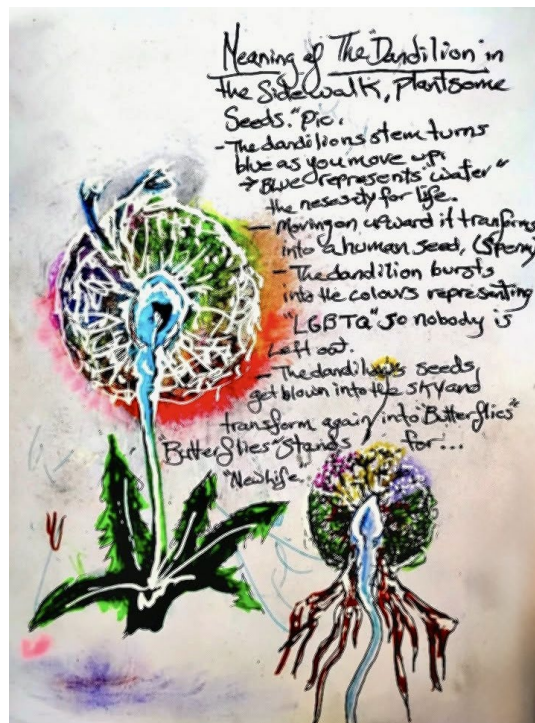 Meaning of The "Dandilion" in
the Sidewalk, Plant some
Seeds." Pic.
- The dandilions stem turns
blue as you move up.
→ "Blue represents water"
the nesesity for life.
- Moving on upward it tranforms
into a human seed, (Sperm)
- The dandilion bursts
into the colours representing
"LGBTQ" so nobody is
left out.
- The dandilions seeds,
get blown into the sky and
transform again into "Butterflies"
"Butterflies" stands for...
"New life."